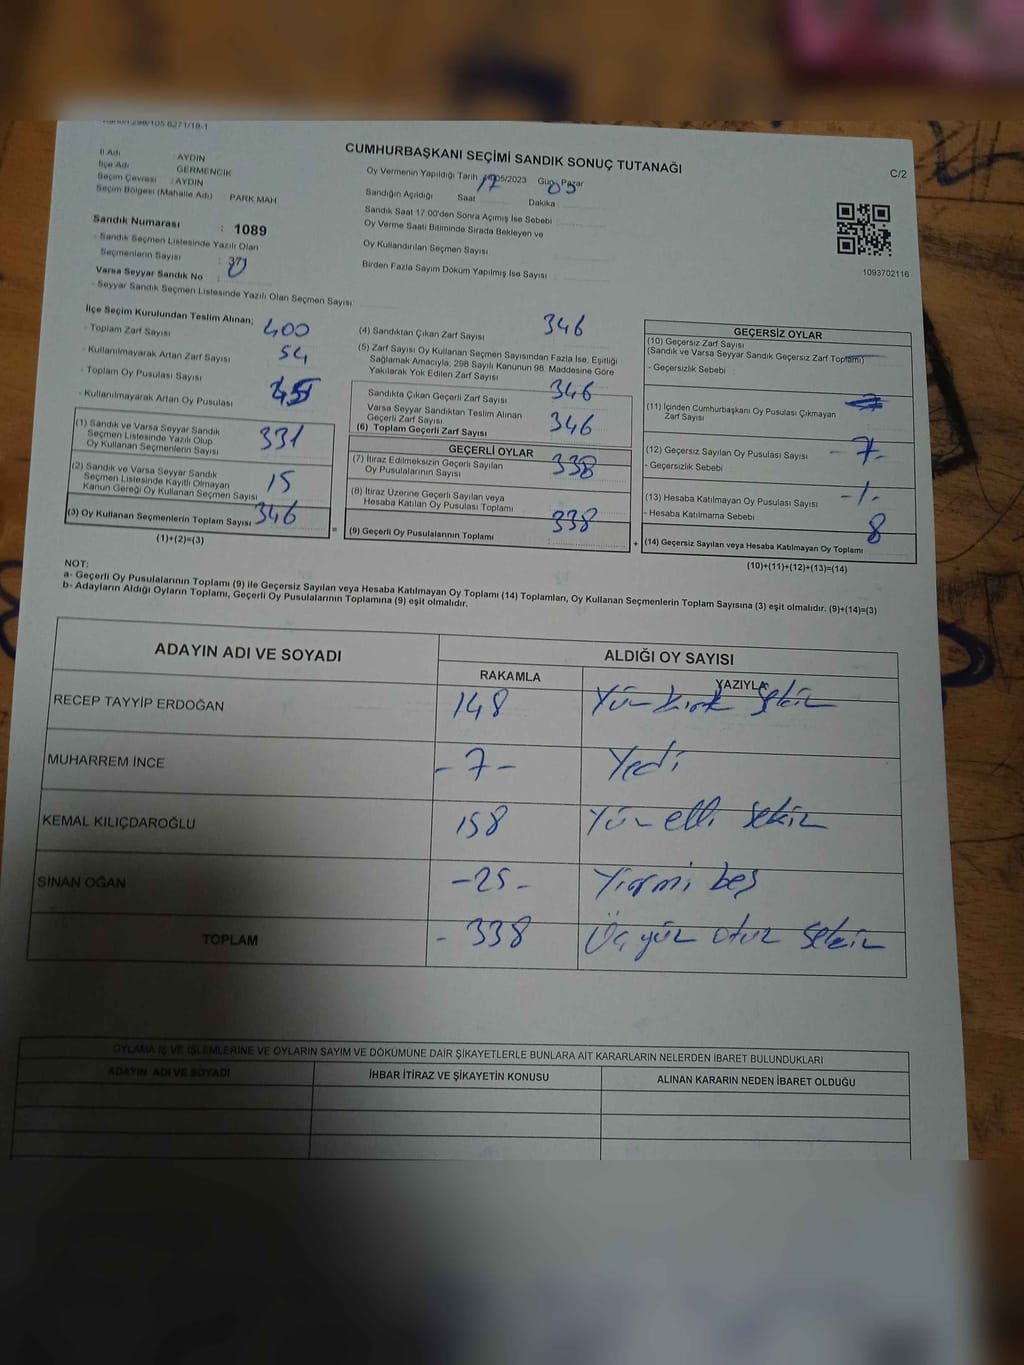 CUMHURBAŞKANI SEÇİMİ SANDIK SONUÇ TUTANAĞI
C/2
İl Adı : AYDIN
İlçe Adı : GERMENCİK
Seçim Çevresi : AYDIN
Seçim Bölgesi (Mahalle Adı) PARK MAH
Sandık Numarası : 1089
- Sandık Seçmen Listesinde Yazılı Olan
Seçmenlerin Sayısı : 371
Varsa Seyyar Sandık No : 0
- Seyyar Sandık Seçmen Listesinde Yazılı Olan Seçmen Sayısı
Oy Vermenin Yapıldığı Tarih 05/2023 Gün Pazar
Sandığın Açıldığı Saat 17 Dakika 05
Sandık Saat 17:00'den Sonra Açımış İse Sebebi
Oy Verme Saati Bitiminde Sırada Bekleyen ve
Oy Kullandırılan Seçmen Sayısı
Birden Fazla Sayım Döküm Yapılmış İse Sayısı
1093702116
İlçe Seçim Kurulundan Teslim Alınan;
- Toplam Zarf Sayısı 400
- Kullanılmayarak Artan Zarf Sayısı 54
- Toplam Oy Pusulası Sayısı
- Kullanılmayarak Artan Oy Pusulası
(1) Sandık ve Varsa Seyyar Sandık
Seçmen Listesinde Yazılı Olup
Oy Kullanan Seçmenlerin Sayısı 331
(2) Sandık ve Varsa Seyyar Sandık
Seçmen Listesinde Kayıtlı Olmayan
Kanun Gereği Oy Kullanan Seçmen Sayısı 15
(3) Oy Kullanan Seçmenlerin Toplam Sayısı 346
(1)+(2)=(3)
(4) Sandıktan Çıkan Zarf Sayısı 346
(5) Zarf Sayısı Oy Kullanan Seçmen Sayısından Fazla İse, Eşitliği
Sağlamak Amacıyla, 298 Sayılı Kanunun 98. Maddesine Göre
Yakılarak Yok Edilen Zarf Sayısı
Sandıkta Çıkan Geçerli Zarf Sayısı 346
Varsa Seyyar Sandıktan Teslim Alınan
Geçerli Zarf Sayısı
(6) Toplam Geçerli Zarf Sayısı 346
GEÇERLİ OYLAR
(7) İtiraz Edilmeksizin Geçerli Sayılan
Oy Pusulalarının Sayısı 338
(8) İtiraz Üzerine Geçerli Sayılan veya
Hesaba Katılan Oy Pusulası Toplamı
(9) Geçerli Oy Pusulalarının Toplamı 338
GEÇERSİZ OYLAR
(10) Geçersiz Zarf Sayısı
(Sandık ve Varsa Seyyar Sandık Geçersiz Zarf Toplamı)
- Geçersizlik Sebebi
(11) İçinden Cumhurbaşkanı Oy Pusulası Çıkmayan
Zarf Sayısı
(12) Geçersiz Sayılan Oy Pusulası Sayısı -7-
- Geçersizlik Sebebi
(13) Hesaba Katılmayan Oy Pusulası Sayısı -1-
- Hesaba Katılmama Sebebi
(14) Geçersiz Sayılan veya Hesaba Katılmayan Oy Toplamı 8
(10)+(11)+(12)+(13)=(14)
NOT:
a- Geçerli Oy Pusulalarının Toplamı (9) ile Geçersiz Sayılan veya Hesaba Katılmayan Oy Toplamı (14) Toplamları, Oy Kullanan Seçmenlerin Toplam Sayısına (3) eşit olmalıdır. (9)+(14)=(3)
b- Adayların Aldığı Oyların Toplamı, Geçerli Oy Pusulalarının Toplamına (9) eşit olmalıdır.
ADAYIN ADI VE SOYADI ALDIĞI OY SAYISI
RAKAMLA YAZIYLA
RECEP TAYYİP ERDOĞAN 148 Yüz kırk sekiz
MUHARREM İNCE -7- Yedi
KEMAL KILIÇDAROĞLU 158 Yüz elli sekiz
SİNAN OĞAN -25- Yirmi beş
TOPLAM - 338 Üç yüz otuz sekiz
OYLAMA İŞ VE İŞLEMLERİNE VE OYLARIN SAYIM VE DÖKÜMÜNE DAİR ŞİKAYETLERLE BUNLARA AİT KARARLARIN NELERDEN İBARET BULUNDUKLARI
ADAYIN ADI VE SOYADI İHBAR İTİRAZ VE ŞİKAYETİN KONUSU ALINAN KARARIN NEDEN İBARET OLDUĞU